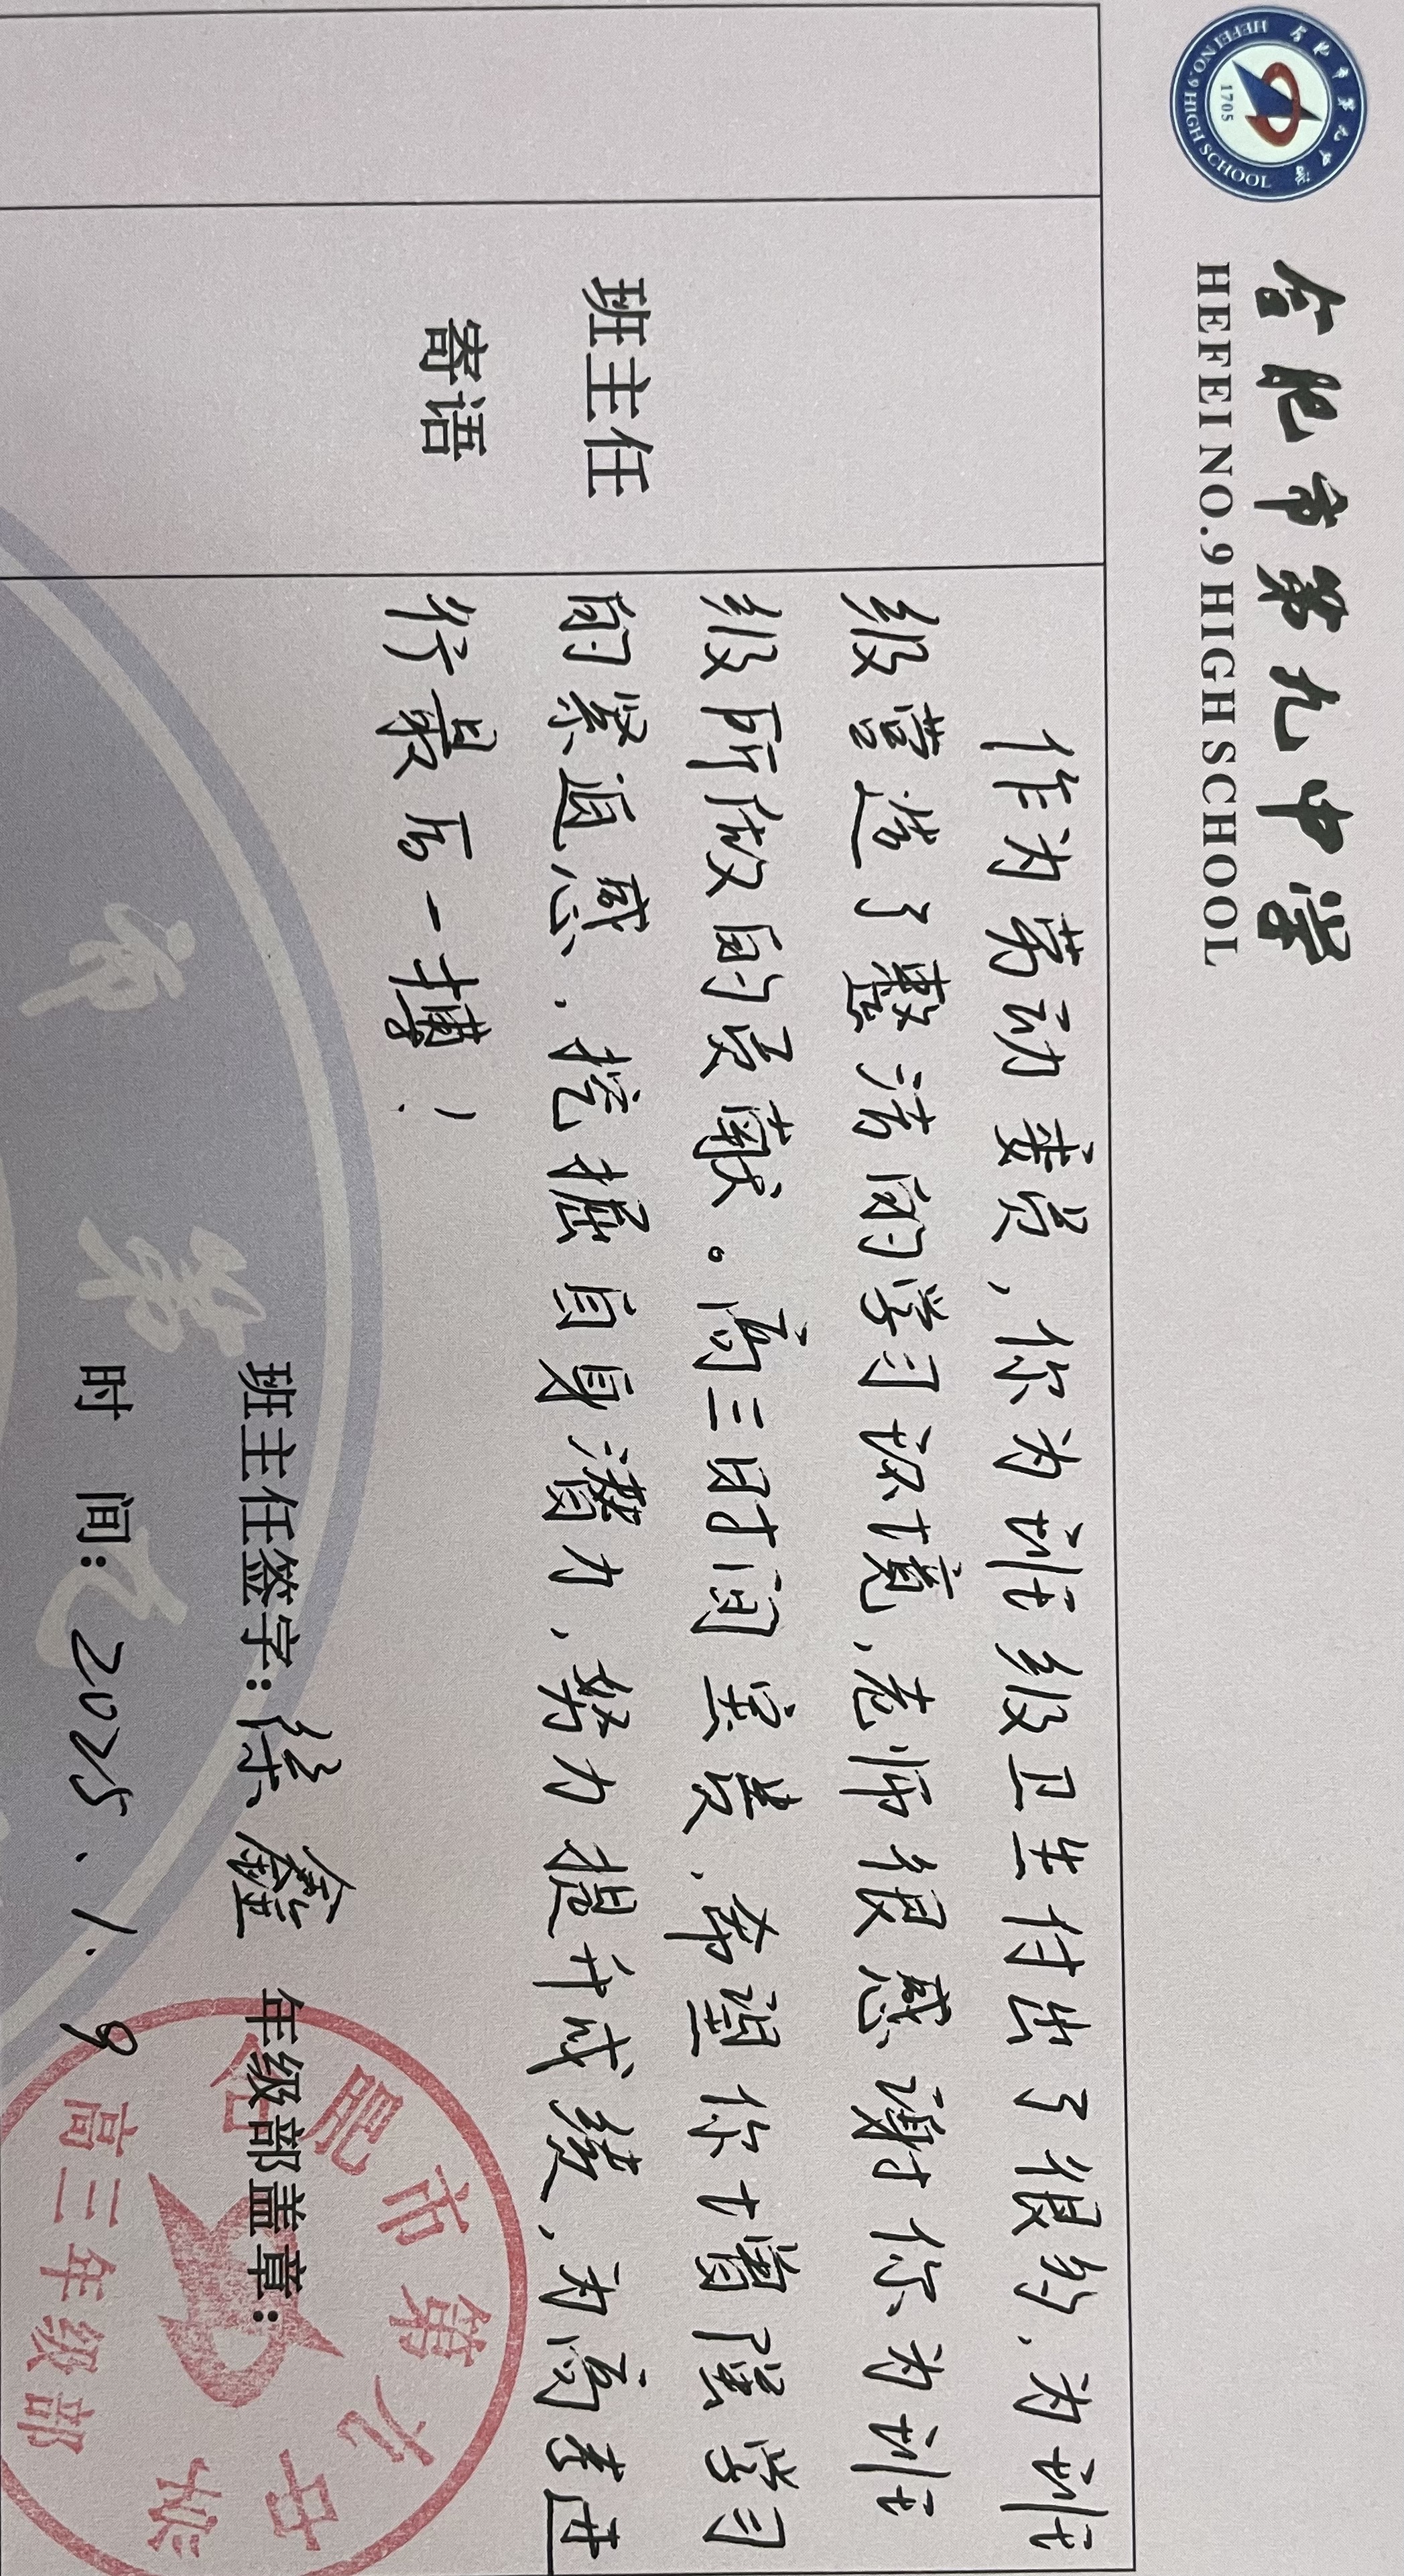 合肥市第九中学
HEFEI NO.9 HIGH SCHOOL
合肥市第九中学
HEFEI NO.9 HIGH SCHOOL
1705
班主任
寄语
作为劳动委员，你为班级卫生付出了很多，为班
级营造了整洁的学习环境，老师很感谢你为班
级所做的贡献。高三时间宝贵，希望你增强学习
的紧迫感，挖掘自身潜力，努力提升成绩，为高考进
行最后一搏！
班主任签字：徐鑫 年级部盖章：
时 间：2025.1.9
合肥市第九中学
高三年级部
市第九